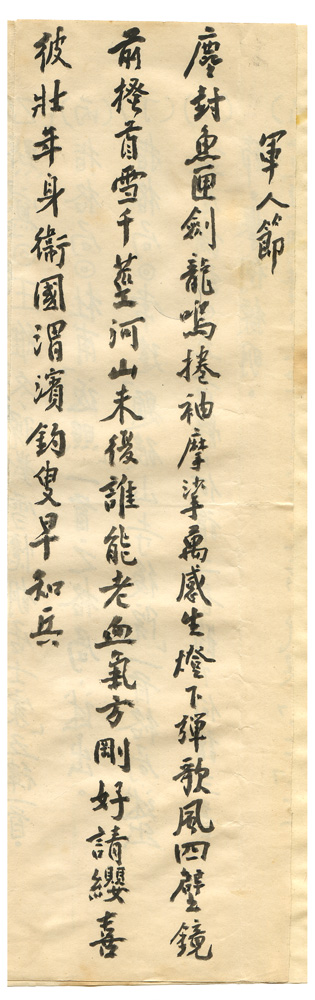 軍人節
塵封魚匣劍龍鳴捲袖摩挲萬感生燈下彈歌風四壁鏡
前搔首雪千莖河山未復誰能老血氣方剛好請纓喜
彼壯年身衛國渭濱釣叟早知兵